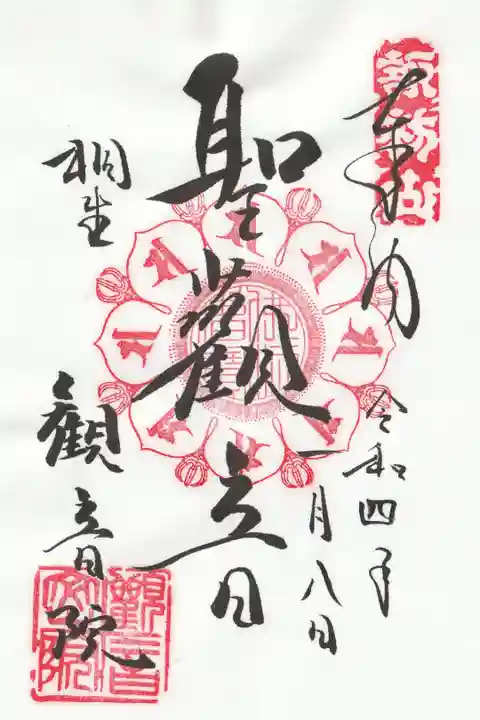 奉納
令和四年
一月八日
聖觀音
桐生
観音院
觀音院